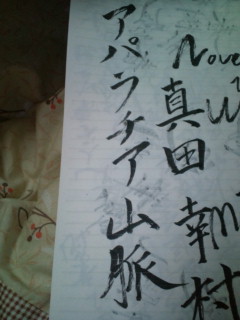 Nove
真田幸村
アパラチア山脈